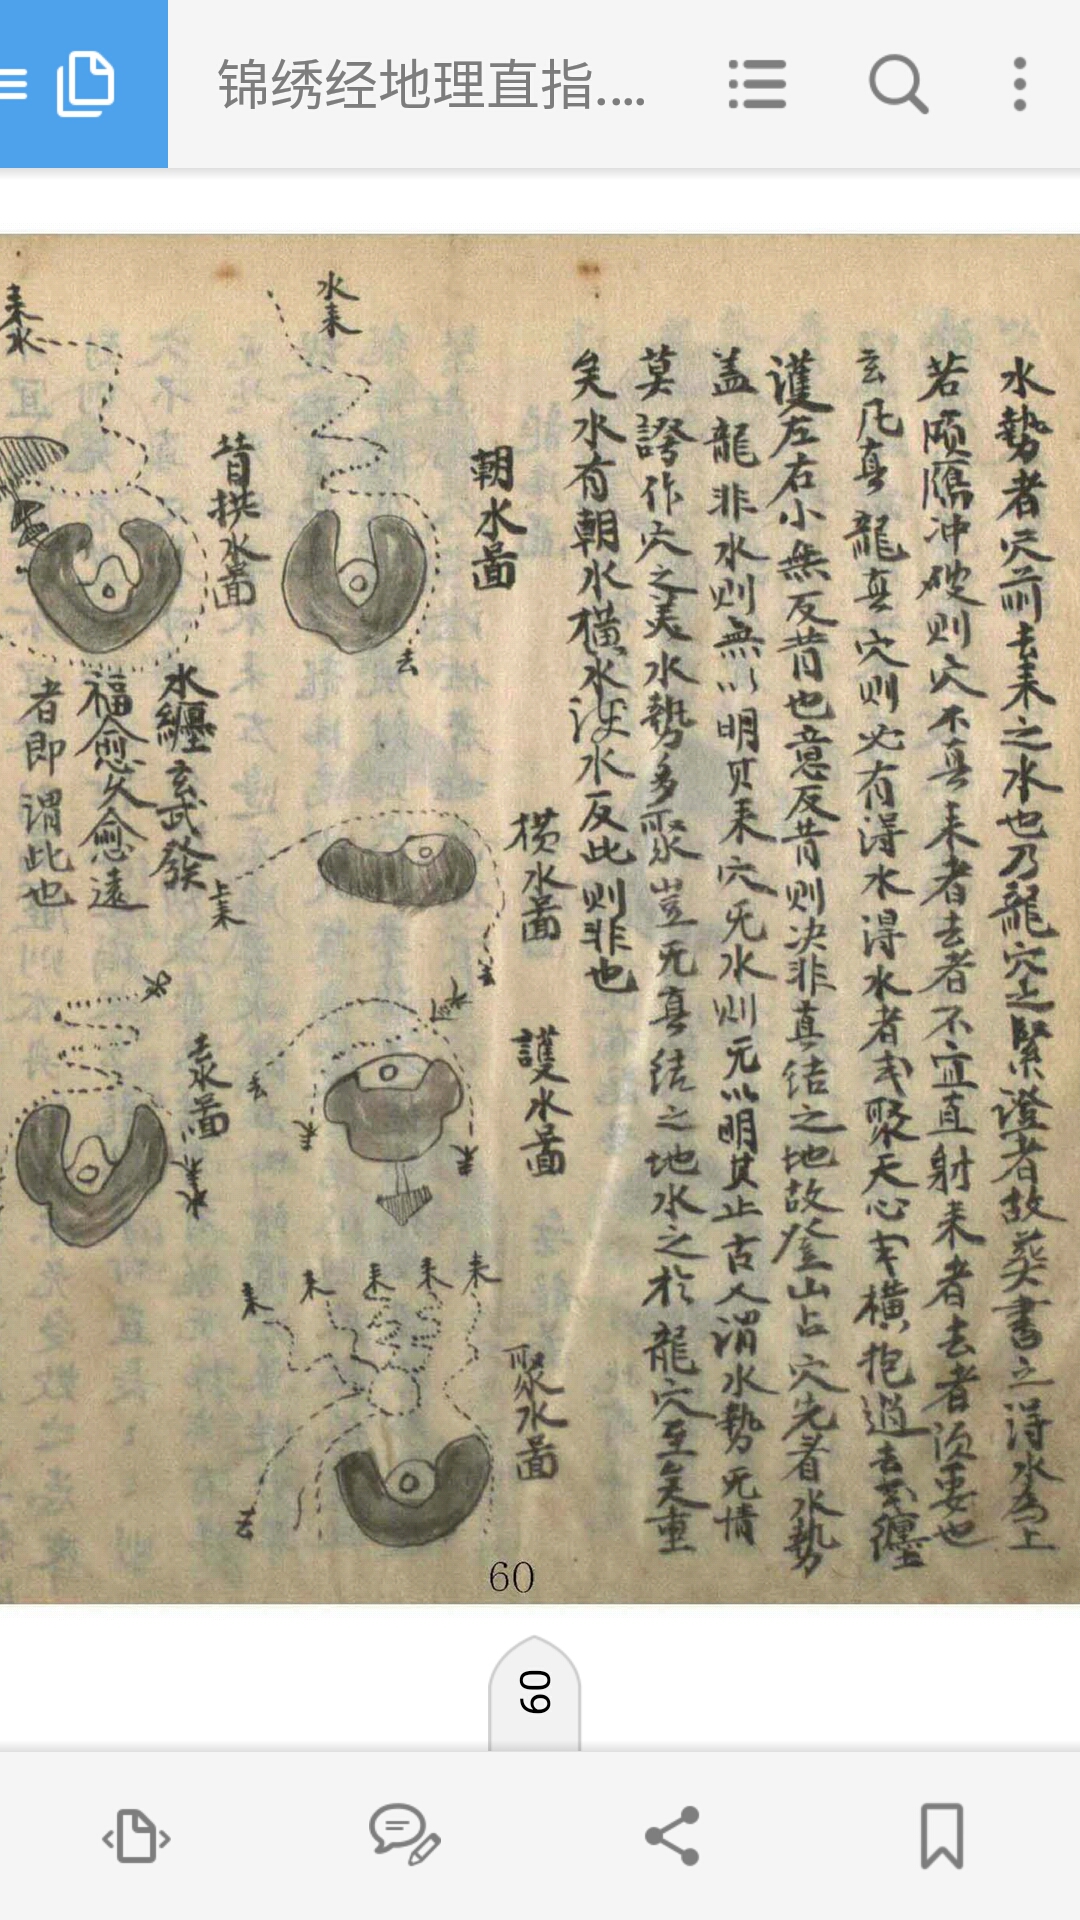 锦绣经地理直指....
水勢者穴前去耒之水也乃龍穴之緊證者故葬書云得水為上
若傾瀉冲破則穴不真耒者去者不宜直射耒者去者须要也
玄凡真龍真穴則必有得水得水者或聚天心或横抱過去或纏
護左右小無反背也意反背則决非真结之地故登山占穴先看水势
盖龍非水則無以明其耒穴无水則无以明其止古人谓水势无情
莫誇作穴之美水勢多聚豈无真结之地水之於龍穴至矣重
矣水有朝水横水 水反此則非也
朝水圖
水耒
去
横水圖
耒
去
護水圖
去
耒
耒
聚水圖
耒
耒
耒
耒
耒
去
背拱水圖
耒水
水纏玄武發
福愈久愈遠
者即谓此也
圖
60
60